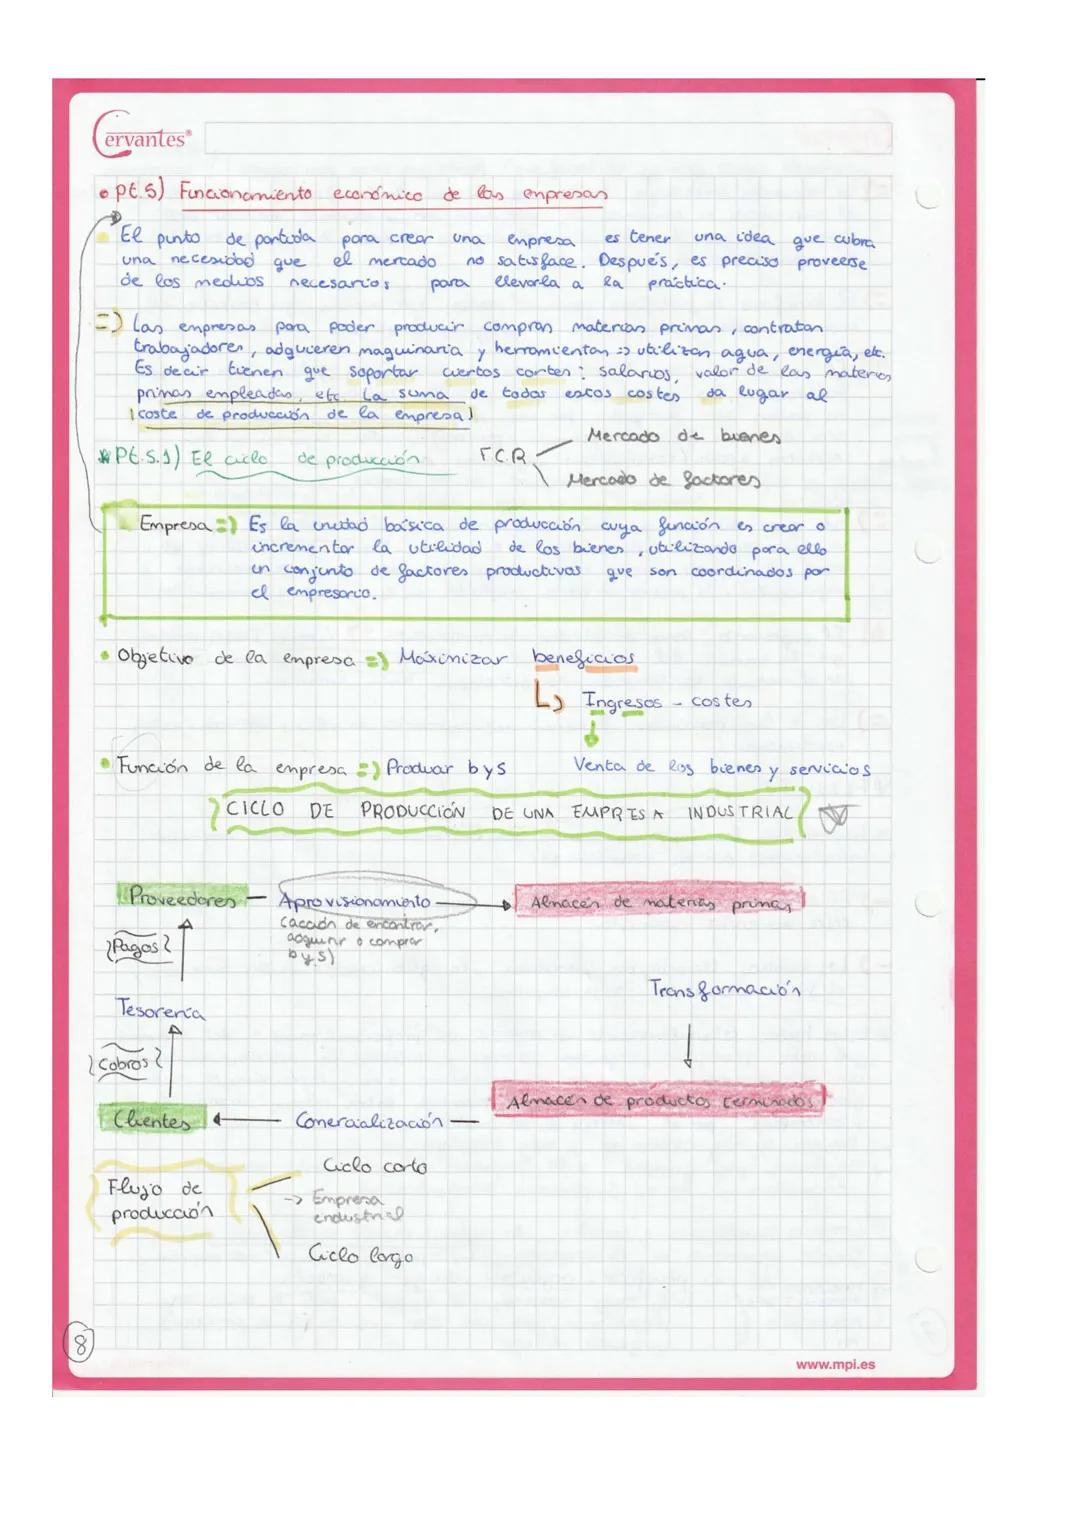 Cervantes®
• Pt.5) Funcionamiento económico de las empresas
El punto de partida para crear una empresa es tener una idea que cubra
una necesidad que el mercado no satisface. Después, es preciso proveerse
de los medios necesarios para llevarla a la práctica.
=) Las empresas para poder producir compran materias primas, contratan
trabajadores, adquieren maquinaria y herramientas => utilizan agua, energía, etc.
Es decir tienen que soportar ciertos cortes: salarios, valor de las materias
primas empleadas, etc. La suma de todos estos costes da lugar al
coste de producción de la empresa
* Pt.5.1) El ciclo de producción
F.C.R
Mercado de bienes
Mercado de factores
Empresa =) Es la unidad básica de producción cuya función es crear o
incrementar la utilidad de los bienes, utilizando para ello
un conjunto de factores productivos que son coordinados por
el empresario.
• Objetivo de la empresa =) Maximizar beneficios
Ingresos - costes
• Función de la empresa =) Producir b y S
Venta de los bienes y servicios
CICLO DE PRODUCCIÓN DE UNA EMPRESA INDUSTRIAL
Proveedores — Aprovisionamiento → Almacén de materias primas
(acción de encontrar,
adquirir o comprar
b y S)
Pagos
Transformación
Tesorería
Cobros
Almacén de productos terminados
Clientes ← Comercialización —
Flujo de
producción
Ciclo corto
→ Empresa
industrial
Ciclo largo
8
www.mpi.es